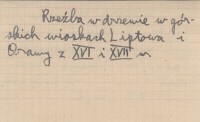 Rzeźba w drzewie w gór-
skich wioskach Liptowa i
Orawy z XVI i XVII w